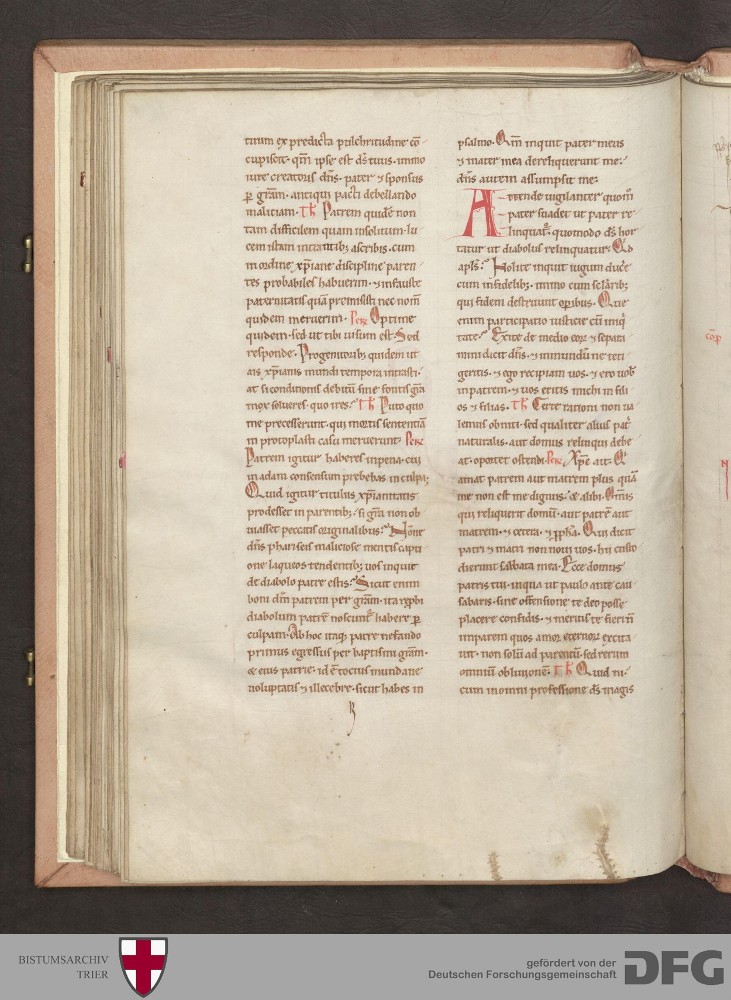 turum ex predicta pulchritudine cō-
cupiscit. qm̄ ipse est ds̄ tuus. immo
iure creatoris dn̄s. pater ⁊ sponsus
ꝑ grām. antiqui pacti debellando
maliciam. Th̄ Patrem quidē non
tam difficilem quam insolitum. lu
cem istam intrantibꝫ ascribis. cum
in ordine xp̄iane discipline paren
tes probabiles habuerim. ⁊ infauste
paternitatis quā premisisti nec nom̄
quidem meruerim. Per Optime
quidem. sed ut tibi uisum est. Sed
responde. Progenitoribꝫ quidem ut
ais xp̄ianis mundi tempora intrasti.
at si conditionis debitū sine fontis grā
mox solueres. quo ires? Th̄ Puto quo
me precesserunt. qui mortis sententiā
in protoplasti casu meruerunt. Per
Patrem igitur haberes in pena. cui
in adam consensum prebebas in culpa;
Quid igitur titulus xp̄ianitatis
prodesset in parentibꝫ. si grā non ob
uiasset peccatis originalibus? Nonne
dn̄s phariseis maliciose mentis capti
one laqueos tendentibꝫ. uos inquit
de diabolo patre estis? Sicut enim
boni dm̄ patrem per grām. ita rep̄bi
diabolum patrē noscunt᷑ habere ꝑ
culpam. Ab hoc itaqꝫ patre nefando
primus egressus per baptismi grām.
⁊ eius patrie. id ē tocius mundane
uoluptatis ⁊ illecebre. sicut habes in
psalmo. Qm̄ inquit pater meus
⁊ mater mea dereliquerunt me.
dn̄s autem assumpsit me.
Attende uigilanter quom̄
pater suadet ut pater re
linquat᷑. quomodo ds̄ hor
tatur ut diabolus relinquatur. Qd
apls̄? Nolite inquit iugum ducͤe
cum infidelibꝫ. immo cum scl̄aribꝫ
qui fidem destruunt oꝑibus. Que
enim participatio iusticie cū iniq
tate? Exite de medio eoꝝ ⁊ separa
mini dicit dn̄s. ⁊ inmundū ne teti
geritis. ⁊ ego recipiam uos. ⁊ ero uob̄
in patrem. ⁊ uos eritis michi in fili
os ⁊ filias. Th̄ Certe rationi non ua
lemus obniti. sed qualiter alius pat̄
naturalis. aut domus relinqui debe
at. oportet ostendi. Per Xp̄c ait. Q̇
amat patrem aut matrem plus quā
me non est me dignus. ⁊ alibi. Om̄is
qui reliquerit domū. aut patrē aut
matrem. ⁊ cetera. ⁊ ꝓpha. Qui dicit
patri ⁊ matri non noui uos. hii custo
dierunt sabbata mea. Ecce domus
patris tui. inqua ut paulo ante cau
sabaris. sine offensione te deo posse
placere confidis. ⁊ meritis te fieri n̄
imparem quos amor eternoꝝ excita
uit. non solū ad parentū. sed rerum
omniū obliuionē. Th̄ Quid ni.
cum in omni professione ds̄ magis
BISTUMSARCHIV
TRIER
gefördert von der
Deutschen Forschungsgemeinschaft
DFG